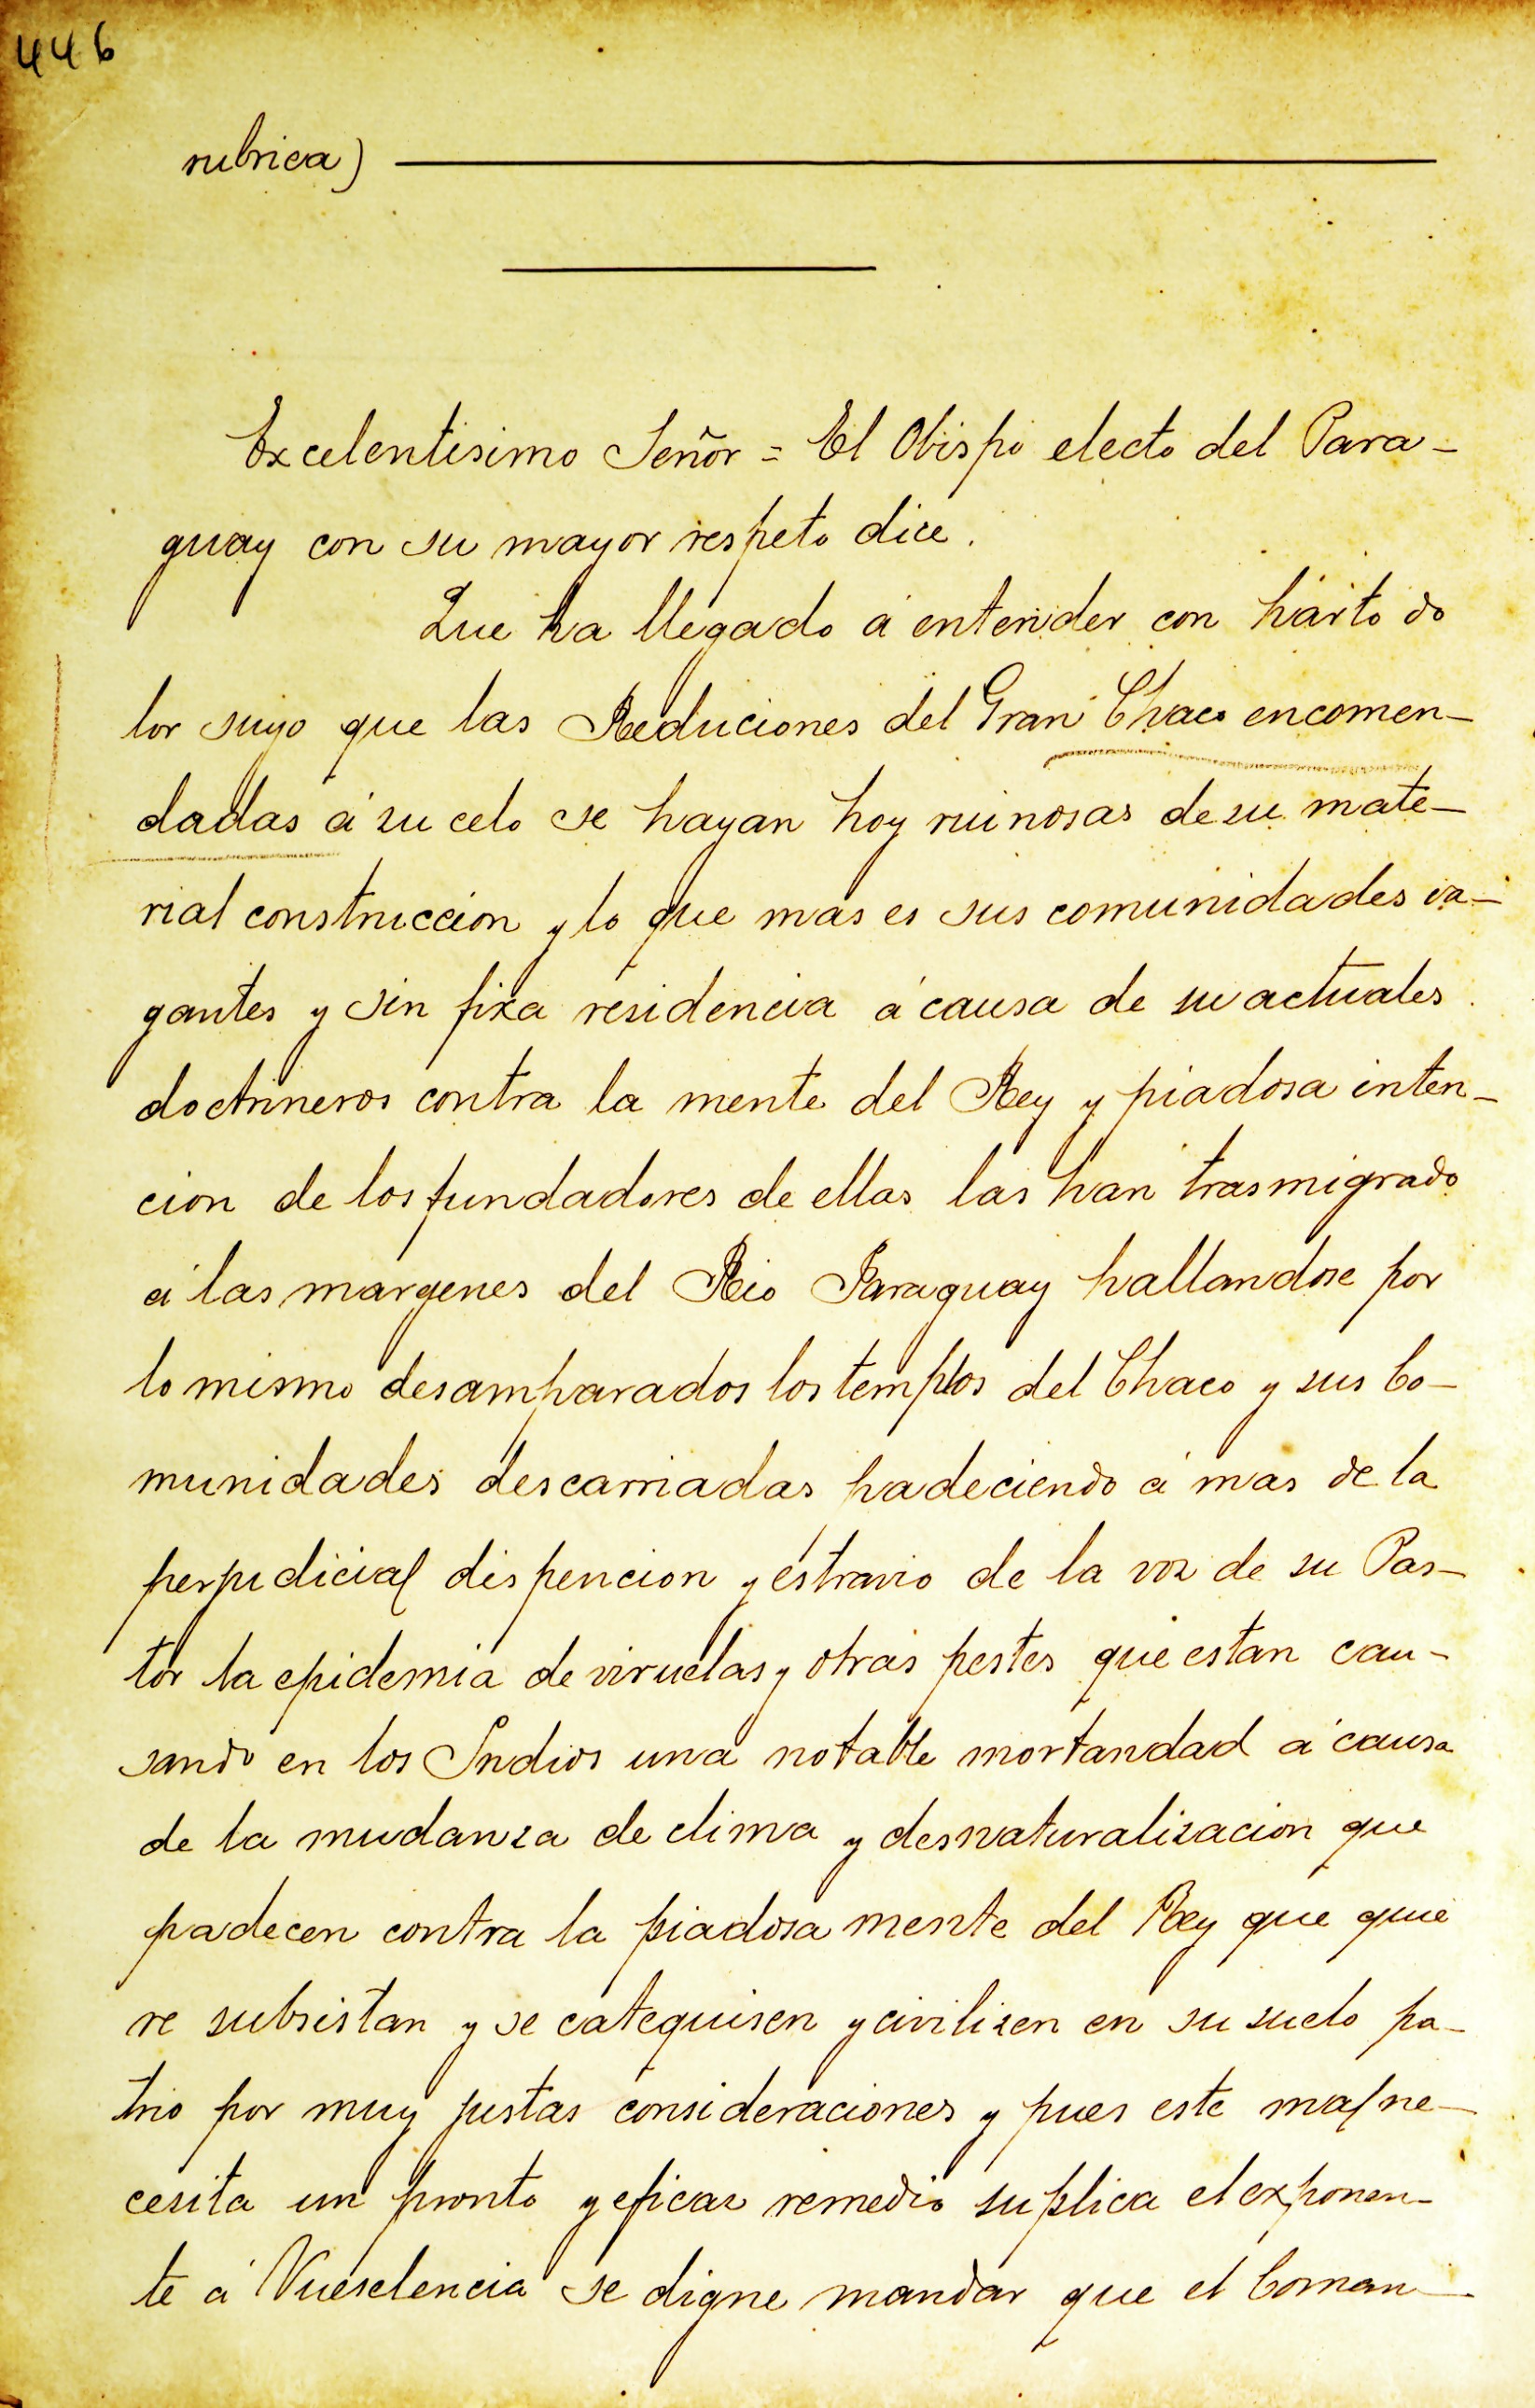 446
rubrica)
Excelentisimo Señor = El Obispo electo del Para-
guay con su mayor respeto dice.
Que ha llegado á entender con harto do
lor suyo que las Reduciones del Gran Chaco encomen-
dadas á su celo se hayan hoy ruinosas de su mate-
rial construccion y lo que mas es sus comunidades va-
gantes y sin fixa residencia á causa de su actuales
doctrineros contra la mente del Rey y piadosa inten-
cion de los fundadores de ellas las han trasmigrado
á las margenes del Rio Paraguay hallandose por
lo mismo desamparados los templos del Chaco y sus Co-
munidades descarriadas padeciendo á mas de la
perjudicial dispencion y estravio de la voz de su Pas-
tor la epidemia de viruelas y otras pestes que estan cau-
sando en los Indios una notable mortandad á causa
de la mudanza de clima y desnaturalizacion que
padecen contra la piadosa mente del Rey que quie
re subsistan y se catequisen y civilizen en su suelo pa-
trio por muy justas consideraciones y pues este mal ne-
cesita un pronto y eficaz remedio suplica el exponen-
te á Vueselencia se digne mandar que el Coman-